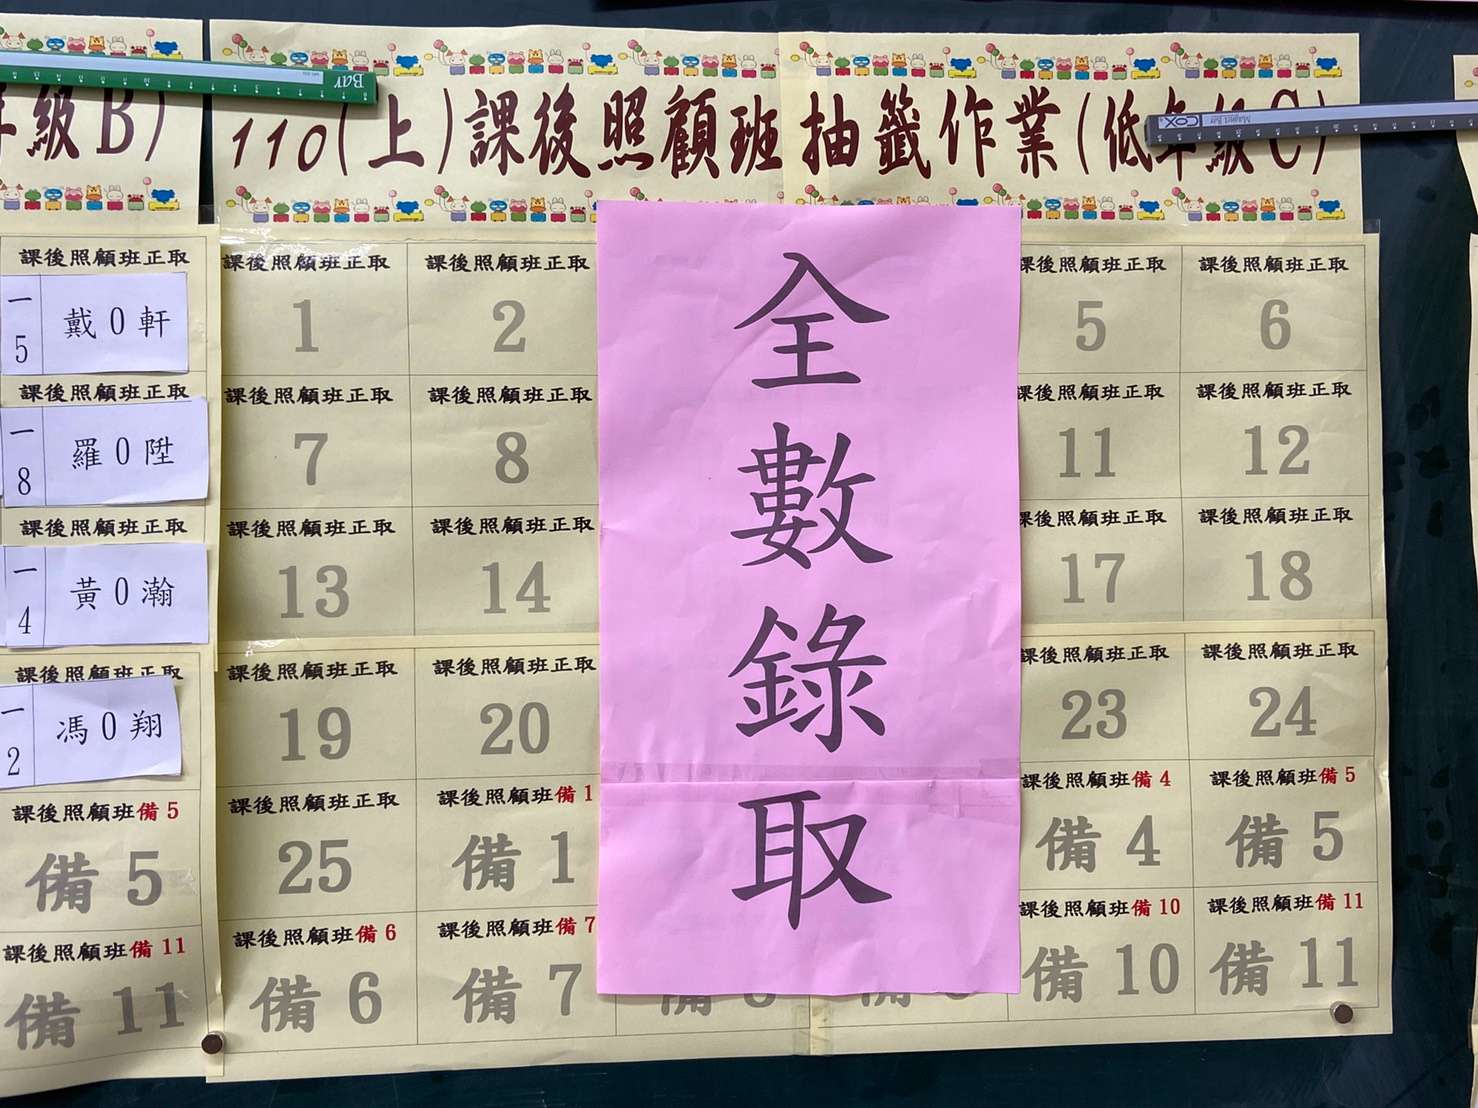 年級B)
課後照顧班正取
一
5
戴0軒
課後照顧班正取
一
8
羅0陞
課後照顧班正取
一
4
黃0瀚
課後照顧班正取
一
2
馮0翔
課後照顧班備5
備5
課後照顧班備11
備11
Bar
110(上)課後照顧班抽籤作業(低年級C)
COX
Magnet Bar
課後照顧班正取 課後照顧班正取
1 2
課後照顧班正取 課後照顧班正取
7 8
課後照顧班正取 課後照顧班正取
13 14
課後照顧班正取 課後照顧班正取
19 20
課後照顧班正取 課後照顧班備1
25 備1
課後照顧班備6 課後照顧班備7
備6 備7
全
數
錄
取
課後照顧班正取 課後照顧班正取
5 6
課後照顧班正取 課後照顧班正取
11 12
課後照顧班正取 課後照顧班正取
17 18
課後照顧班正取 課後照顧班正取
23 24
課後照顧班備4 課後照顧班備5
備4 備5
課後照顧班備10 課後照顧班備11
備10 備11